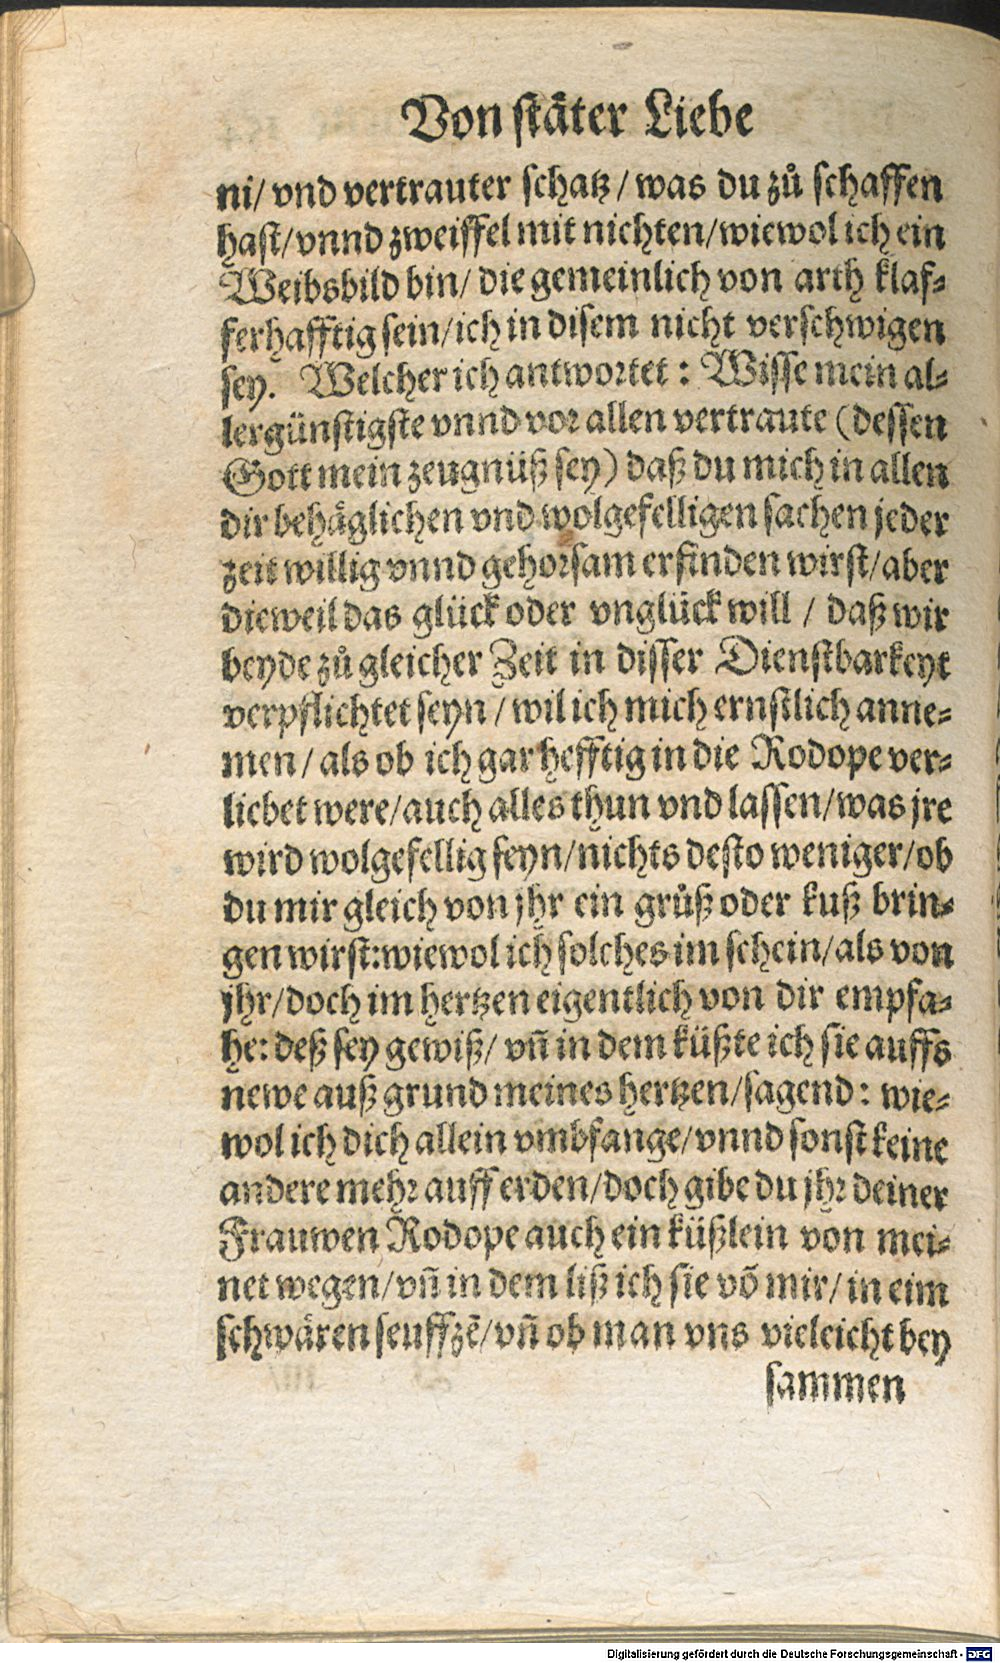 Von stäter Liebe
ni/ vnd vertrauter schatz / was du zů schaffen
hast/ vnnd zweiffel mit nichten/ wiewol ich ein
Weibsbild bin/ die gemeinlich von arth klaf⸗
ferhafftig sein/ ich in disem nicht verschwigen
sey. Welcher ich antwortet : Wisse mein al⸗
lergünstigste vnnd vor allen vertraute (dessen
Gott mein zeugnüß sey) daß du mich in allen
dir behäglichen vnd wolgefelligen sachen jeder
zeit willig vnnd gehorsam erfinden wirst/ aber
dieweil das glück oder vnglück will / daß wir
beyde zů gleicher Zeit in disser Dienstbarkeyt
verpflichtet seyn / wil ich mich ernstlich anne⸗
men / als ob ich gar hefftig in die Rodope ver⸗
liebet were/ auch alles thun vnd lassen/ was jre
wird wolgefellig seyn/ nichts desto weniger/ ob
du mir gleich von jhr ein grůß oder kuß brin⸗
gen wirst: wiewol ich solches im schein/ als von
jhr/ doch im hertzen eigentlich von dir empfa⸗
he: deß sey gewiß/ vñ in dem küßte ich sie auffs
newe auß grund meines hertzen/ sagend : wie⸗
wol ich dich allein vmbfange/ vnnd sonst keine
andere mehr auff erden/ doch gibe du jhr deiner
Frauwen Rodope auch ein küßlein von mei⸗
net wegen/ vñ in dem liß ich sie võ mir/ in eim
schwären seuffzẽ/ vñ ob man vns vieleicht bey
sammen
Digitalisierung gefördert durch die Deutsche Forschungsgemeinschaft - DFG